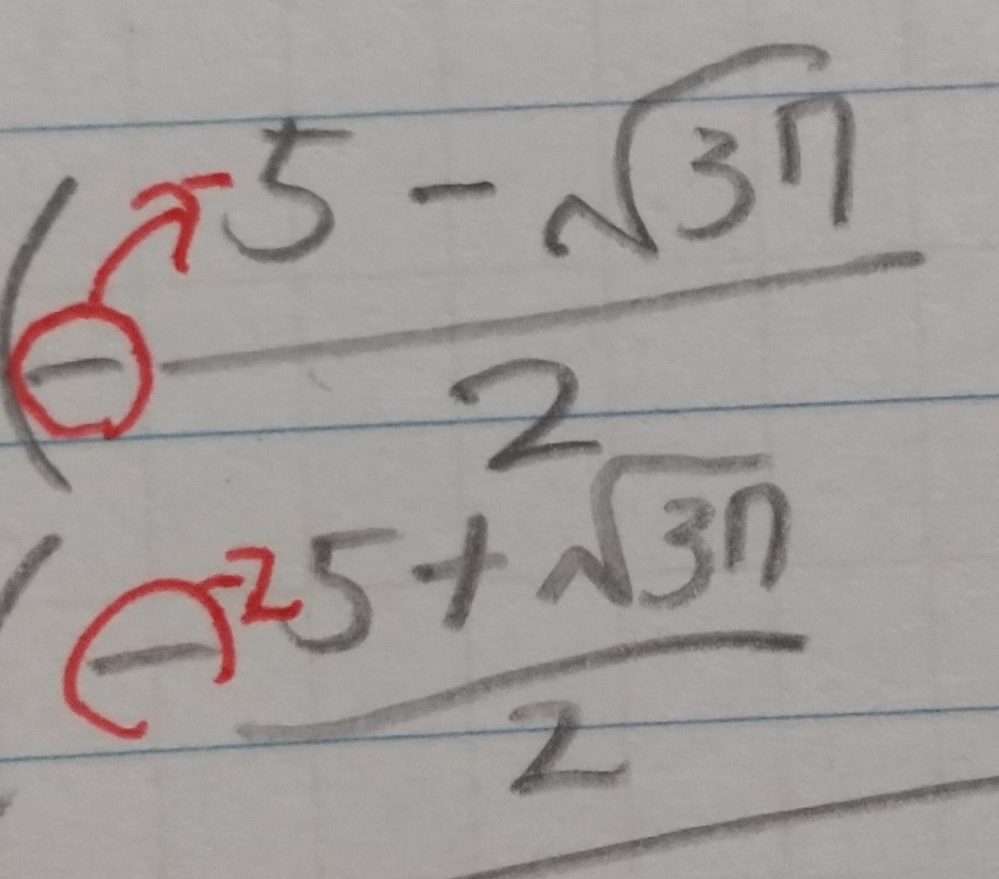 (- 5 - √37
2
(- 5 + √37
2